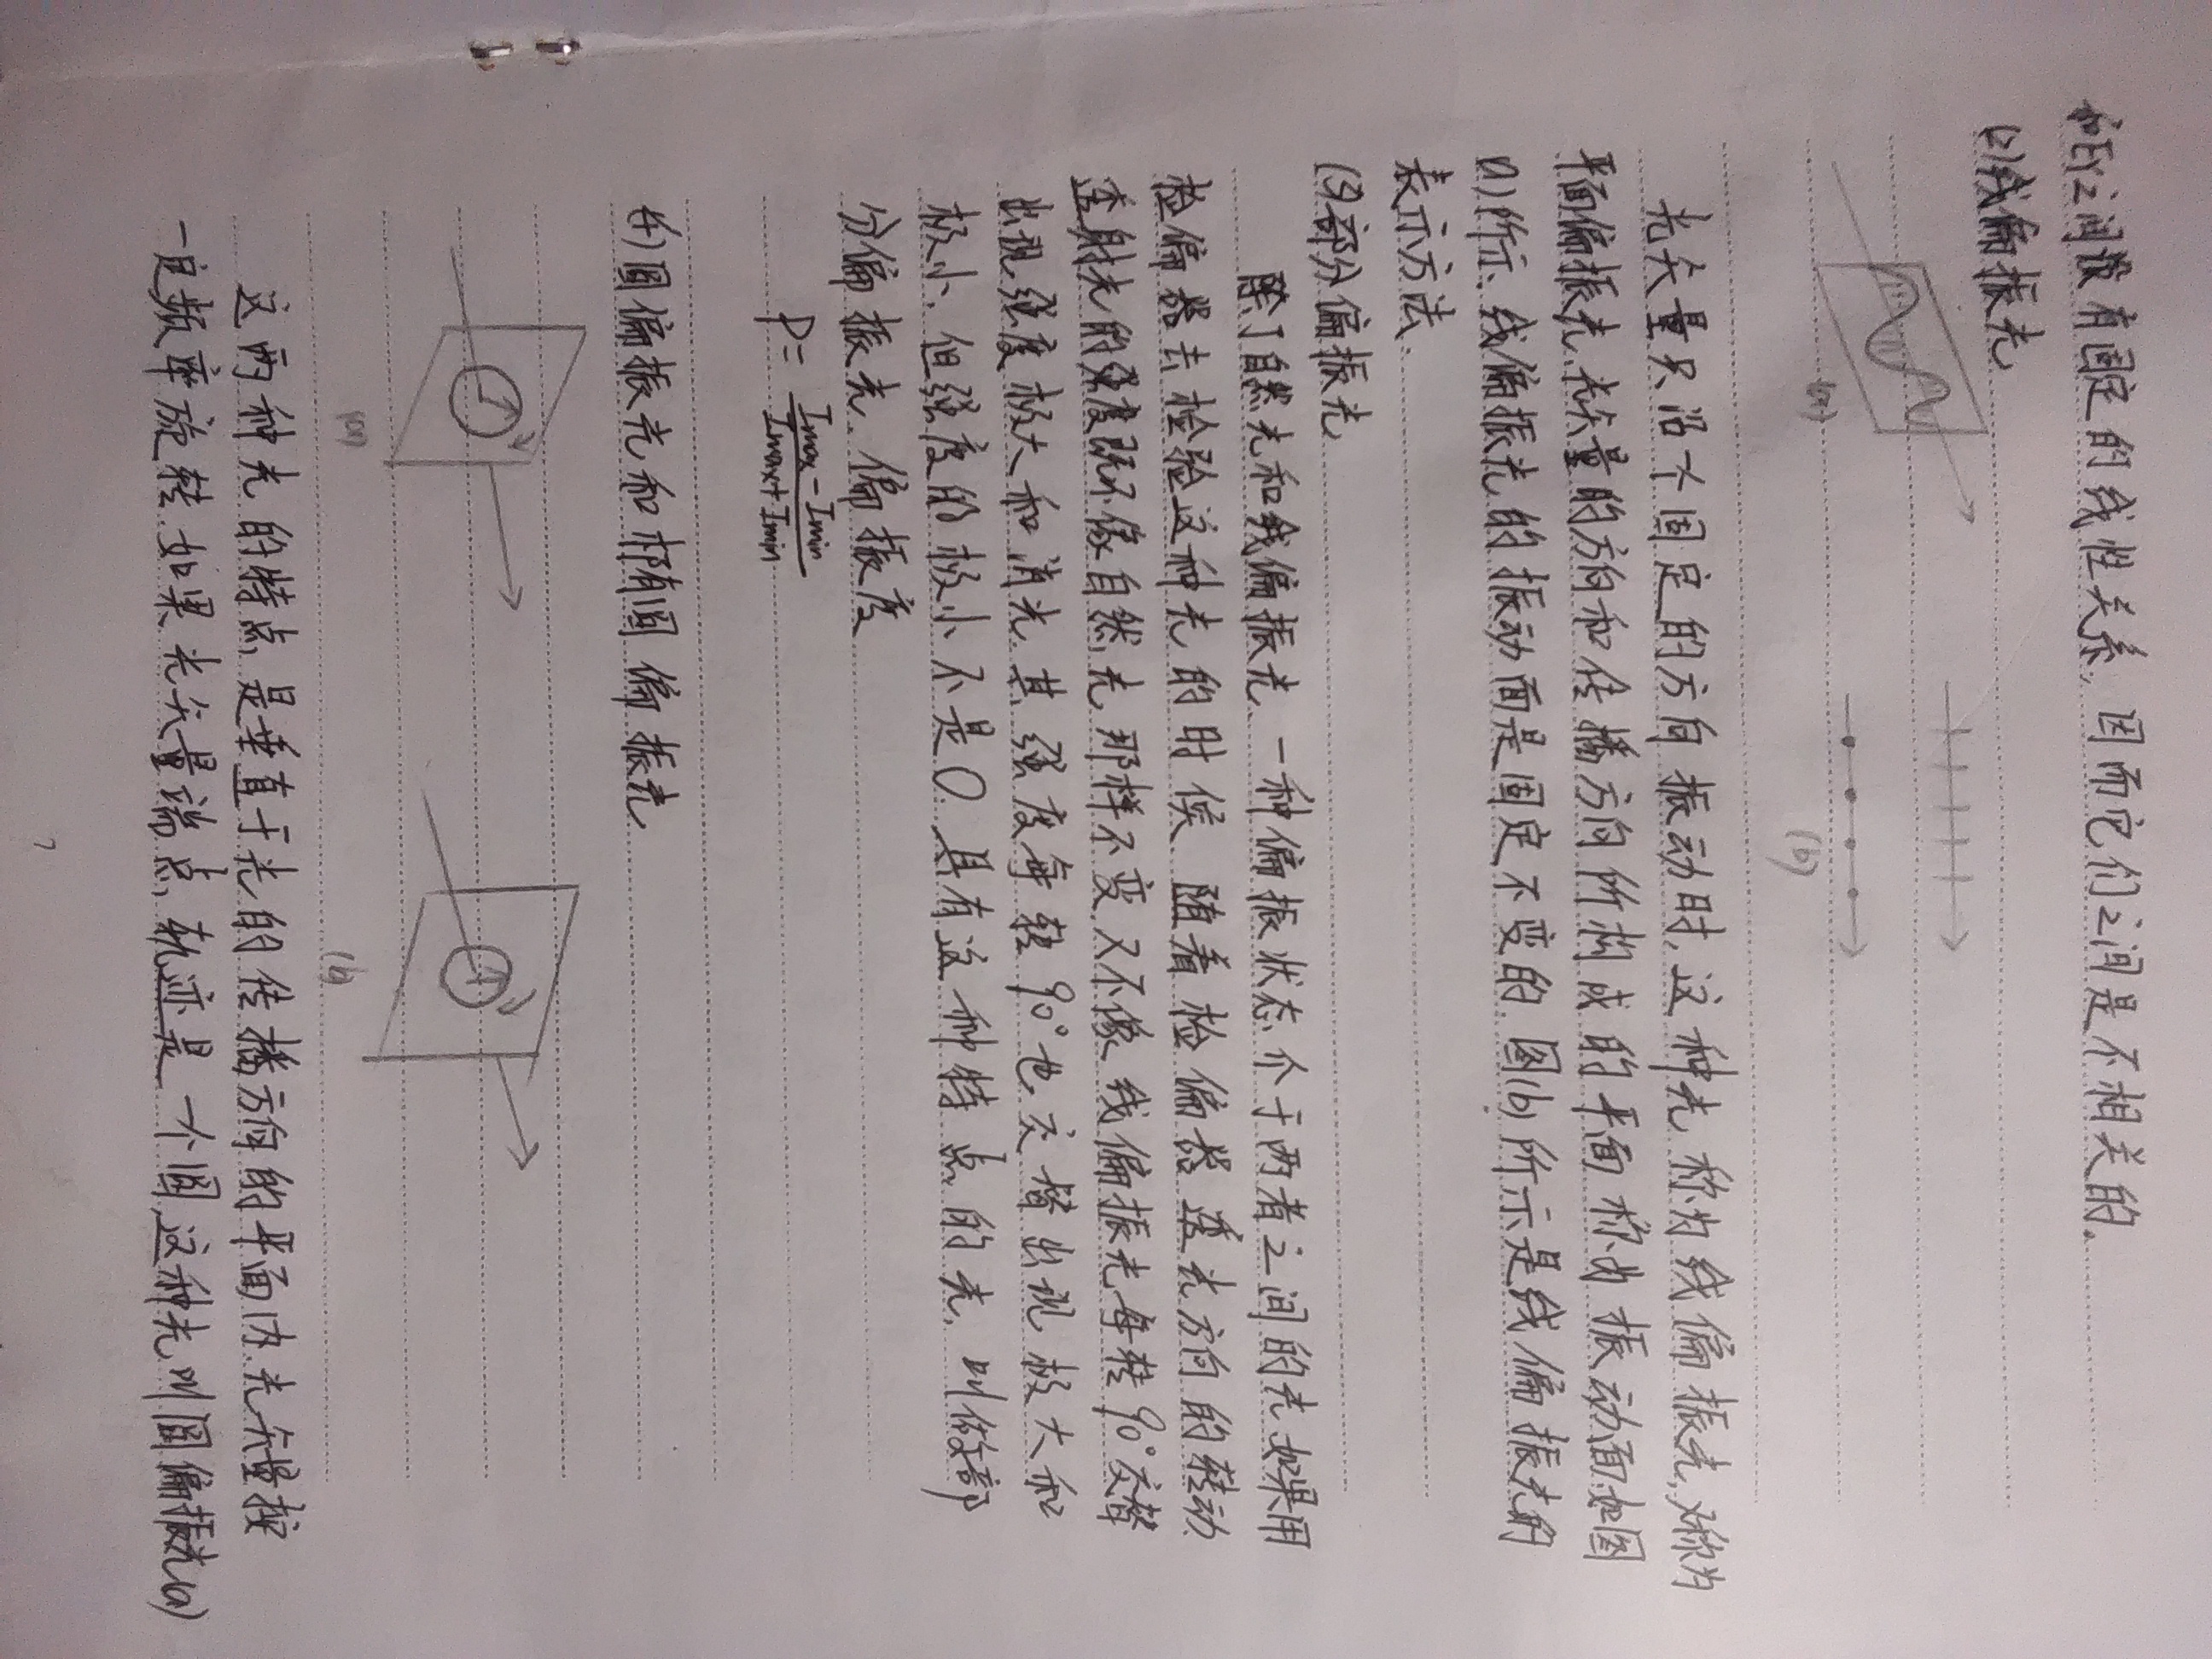 和Ey之间没有固定的线性关系,因而它们之间是不相关的.
(2)线偏振光
(a)
(b)
光矢量只沿一个固定的方向振动时,这种光称为线偏振光,又称为
平面偏振光.光矢量的方向和传播方向所构成的平面称为振动面如图
(a)所示.线偏振光的振动面是固定不变的.图(b)所示是线偏振光的
表示方法.
(3)部分偏振光
除了自然光和线偏振光.一种偏振状态介于两者之间的光.如果用
检偏器去检验这种光的时候,随着检偏器透光方向的转动
透射光的强度既不像自然光那样不变,又不像线偏振光每转90°交替
出现强度极大和消光.其强度每转90°也交替出现极大和
极小,但强度的极小不是0.具有这种特点的光,叫做部
分偏振光.偏振度
P=\frac{Imax-Imin}{Imax+Imin}
(4)圆偏振光和椭圆偏振光
(a)
(b)
这两种光的特点是垂直于光的传播方向的平面内.光矢量按
一定频率旋转.如果光矢量端点,轨迹是一个圆,这种光叫圆偏振光(a)